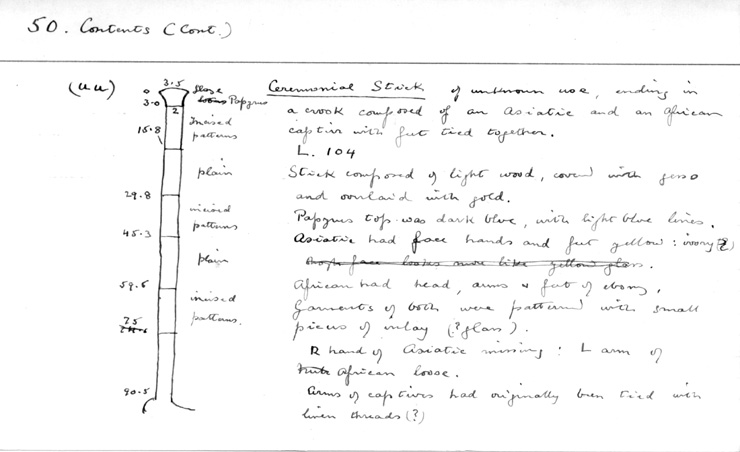 50. Contents (Cont.)
(uu)
3.5
0
3.0
2
Papyrus
Incised
patterns
15.8
plain
29.8
incised
patterns
45.3
plain
59.5
incised
patterns.
75
90.5
Ceremonial Stick of unknown use, ending in
a crook composed of an Asiatic and an African
captive with feet tied together.
L. 104
Stick composed of light wood, covered with gesso
and overlaid with gold.
Papyrus top was dark blue, with light blue lines.
Asiatic had face hands and feet yellow: ivory(?)
face looks more like yellow glass.
African had head, arms & feet of ebony,
Garments of both were patterned with small
pieces of inlay (? glass).
R hand of Asiatic missing: L arm of
African loose.
Arms of captives had originally been tied with
linen threads (?)